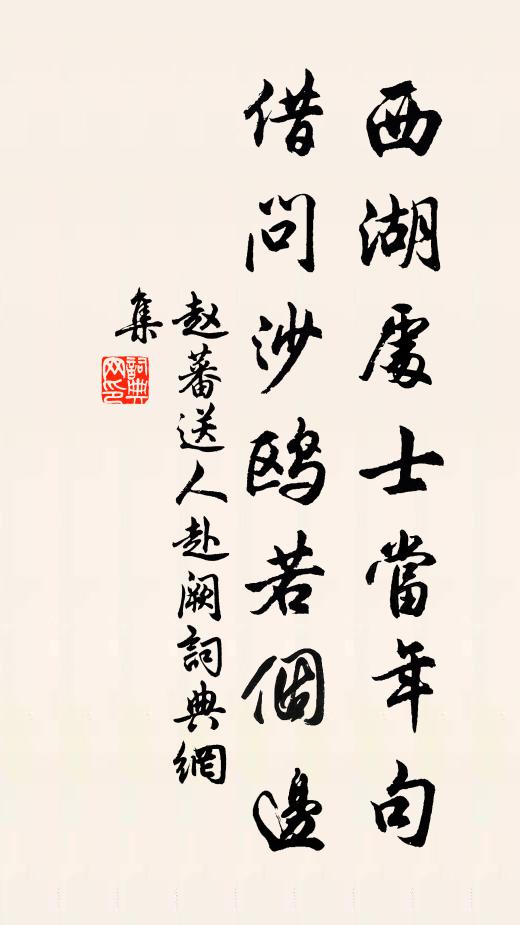 西湖處士當年句
借問沙鸥若個邊
赵蕃送人赴阙詞典網
集
詞典网印